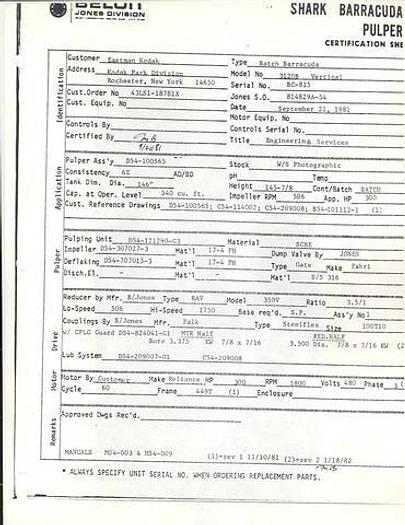 BELOIT
JONES DIVISION
SHARK BARRACUDA
PULPER
CERTIFICATION SHE
Identification
Customer Eastman Kodak Type Batch Barracuda
Address Kodak Park Division Model No 3120B Vertical
Rochester, New York 14650 Serial No. BC-815
Cust.Order No 43LS1-18781X Jones S.O. B14829A-54
Cust. Equip. No Date September 21, 1981
Motor Equip. No
Controls By Controls Serial No.
Certified By Title Engineering Services
Application
Pulper Ass'y D54-100565 Stock W/S Photographic
Consistency 6% AD/BD pH Temp
Tank Dim. Dia. 146" Height 145-7/8 Cont/Batch BATCH
Cap. at Oper. Level 340 cu. ft. Impeller RPM 506 App. HP 300
Cust. Reference Drawings D54-100565; C54-114002; C54-209008; B54-101112-1 (1)
Pulper
Pulping Unit D54-121290-G3 Material SCRE
Impeller D54-307027-3 Mat'l 17-4 PH Dump Valve By JONES
Deflaking D54-707015-3 Mat'l 17-4 PH Type Gate Make Fabri
Disch.El. - Mat'l - Mat'l S/S 316
Drive
Reducer by Mfr. B/Jones Type RAV Model 350V Ratio 3.5/1
Lo-Speed 506 Hi-Speed 1750 Base req'd. S.P. Ass'y No 1
Couplings By B/Jones Mfr. Falk Type Steelflex Size 100T10
w/ CPLG Guard D54-824041-G1 MTR Half RED.HALF
Bore 3.375 KW 7/8 x 7/16 3.500 Dia. 7/8 x 7/16 KW (2
Lub System D54-209007-G1 C54-209008
Motor
Motor By Customer Make Reliance HP 300 RPM 1800 Volts 480 Phase 3
Cycle 60 Frame 449T (1) Enclosure
Remarks
Approved Dwgs Rec'd.
MANUALS M54-003 & M54-009 (1)=rev 1 11/10/81 (2)=rev 2 1/18/82
* ALWAYS SPECIFY UNIT SERIAL NO. WHEN ORDERING REPLACEMENT PARTS.